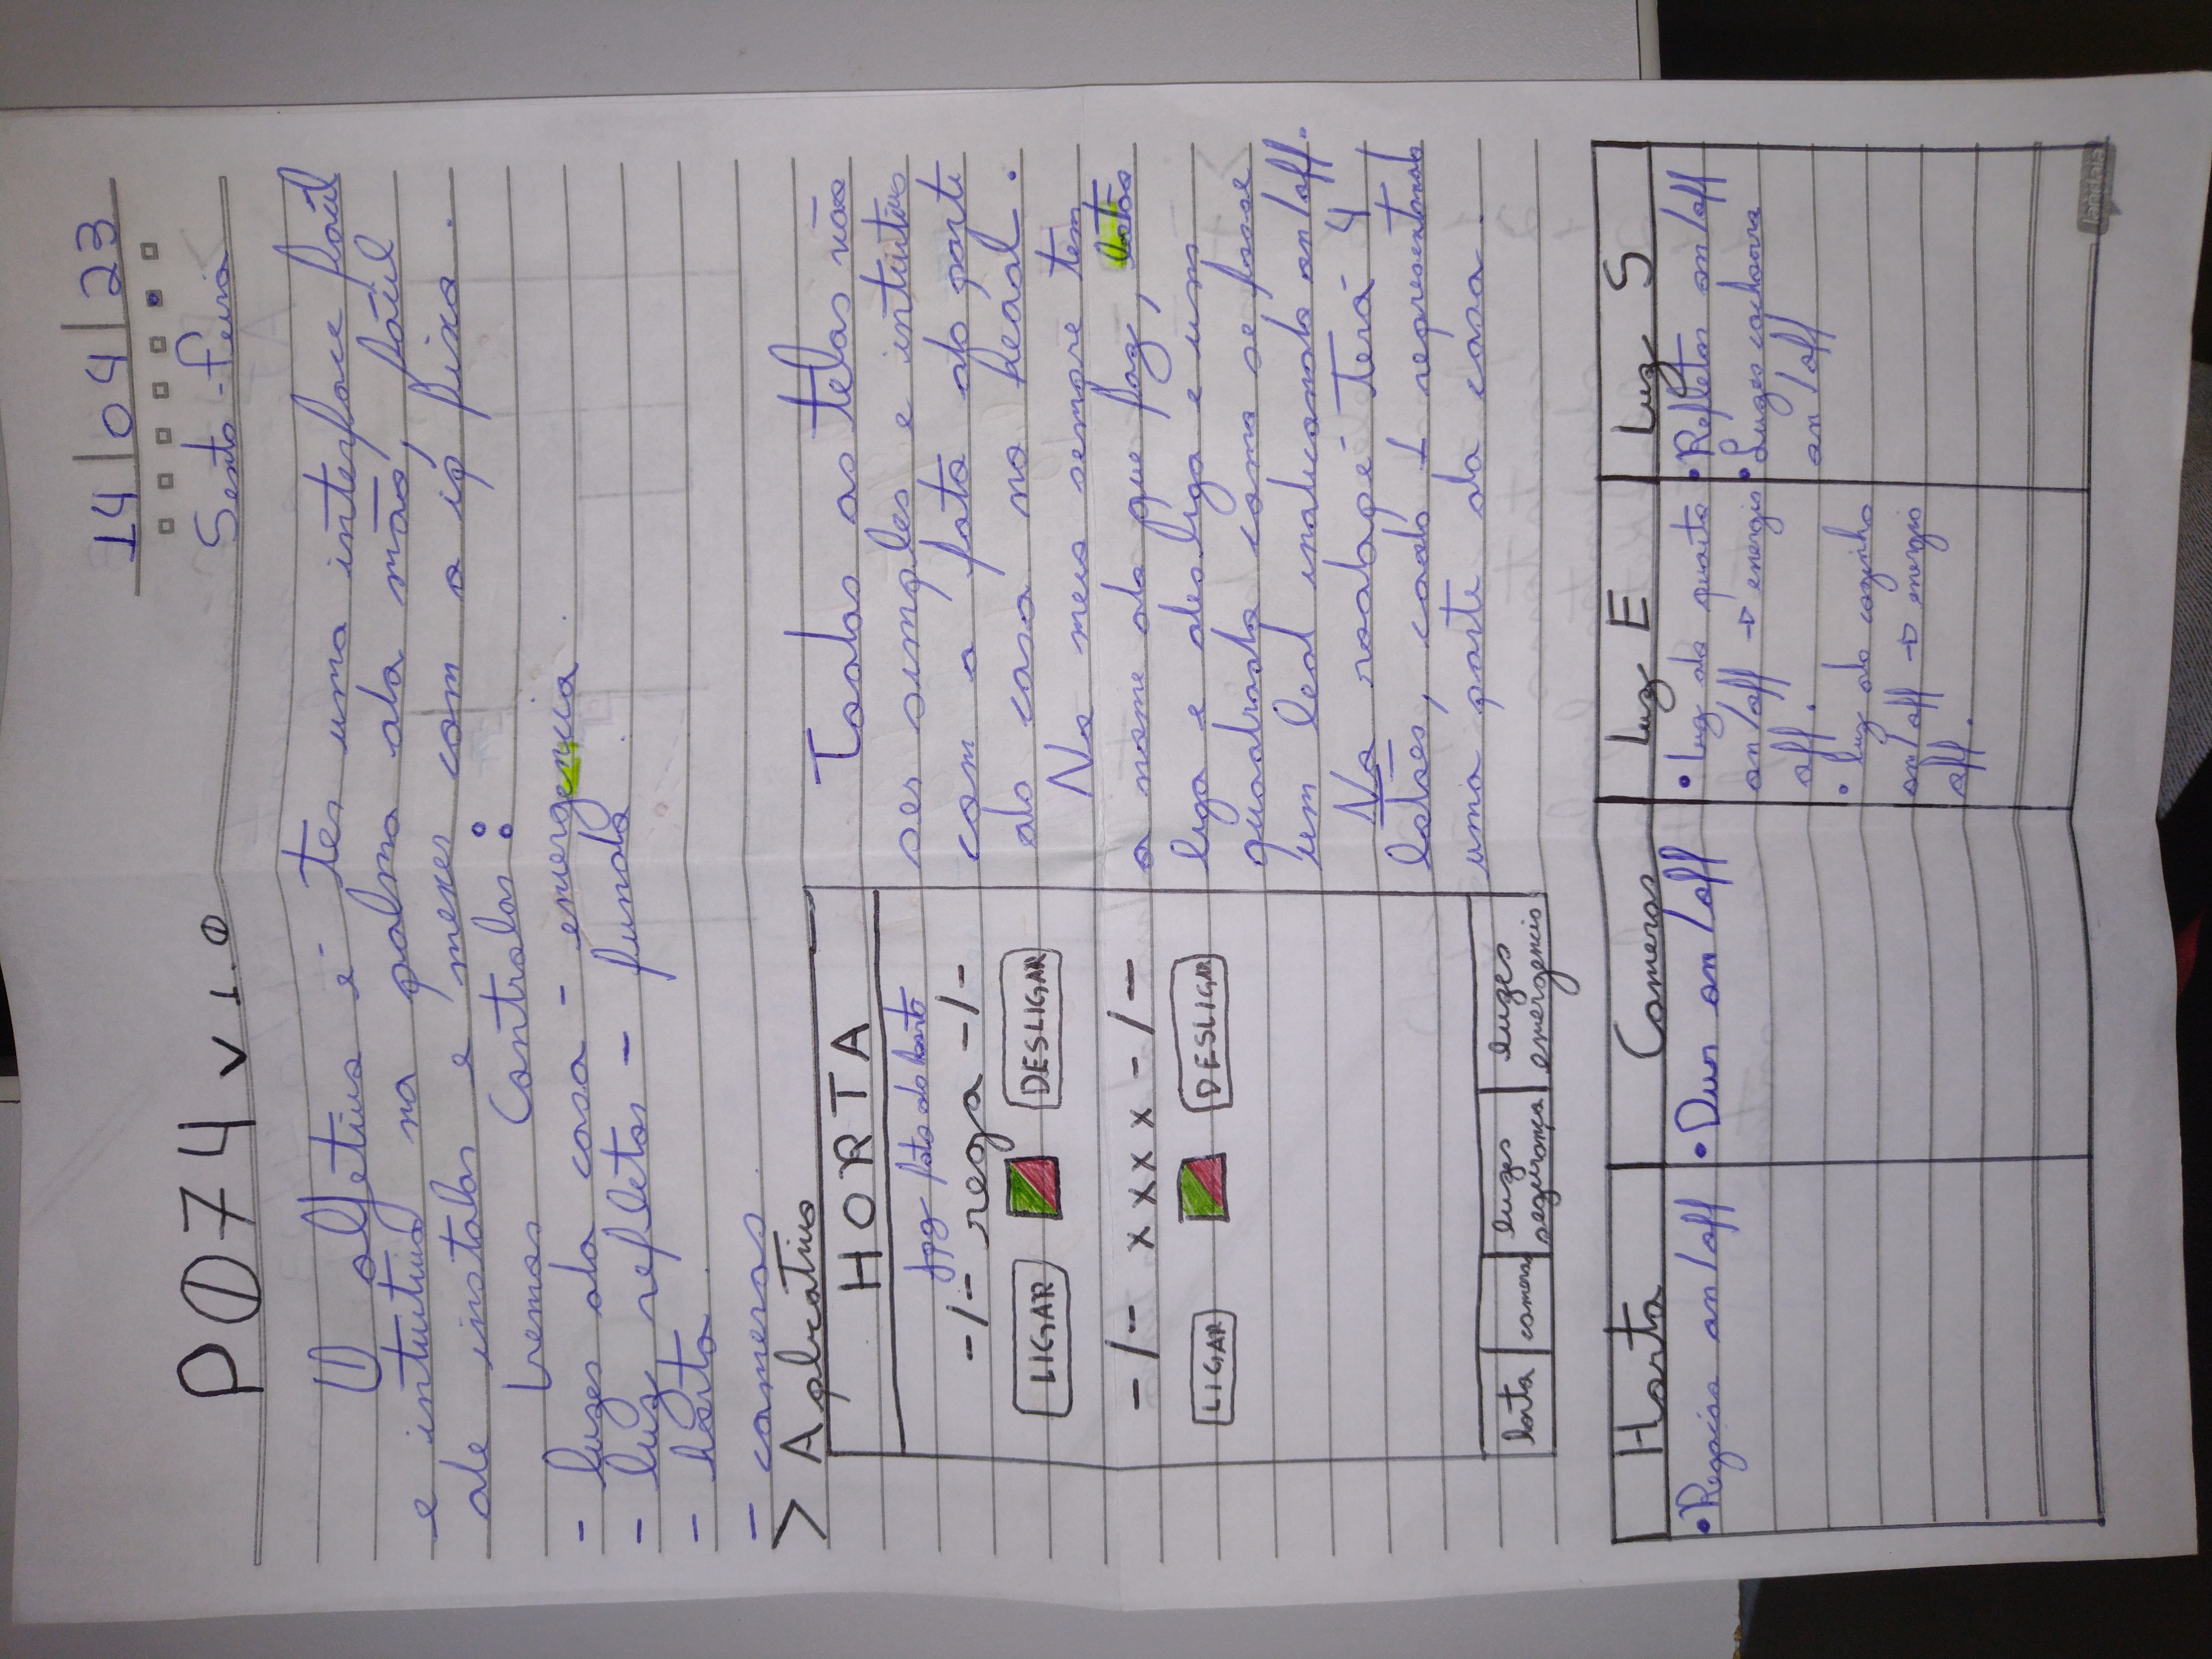 14/04/23
Sexta-feira
PØ74 v 1.0
O objetivo é ter uma interface fácil
e intuitiva na palma da mão, fácil
de instalar e mexer com o ip fixo.
Iremos Controlar:
- luzes da casa - emergencia.
- luz refletor - fundo.
- horta.
- cameras.
> Aplicativo
HORTA
jpg foto da horta
-/- rega -/-
LIGAR DESLIGAR
-/- x x x x -/-
LIGAR DESLIGAR
horta
cameras
luzes
segurança
luzes
emergencia
Todas as telas vão
ser simples e intuitivas
com a foto da parte
da casa no head.
No meio sempre tem
o nome do que faz, botão
liga e desliga e um
quadrado como se fosse
um led indicando on/off.
No rodapé terá 4
botões, cada 1 representando
uma parte da casa.
Horta
• Regação on/off
Cameras
• Dvr on/off
Luz E
• Luz do quarto
on/off → energia
off.
• luz da cozinha
on/off → energia
off.
Luz S
• Refletor on/off
• Luzes cachorro
on/off
jandaia